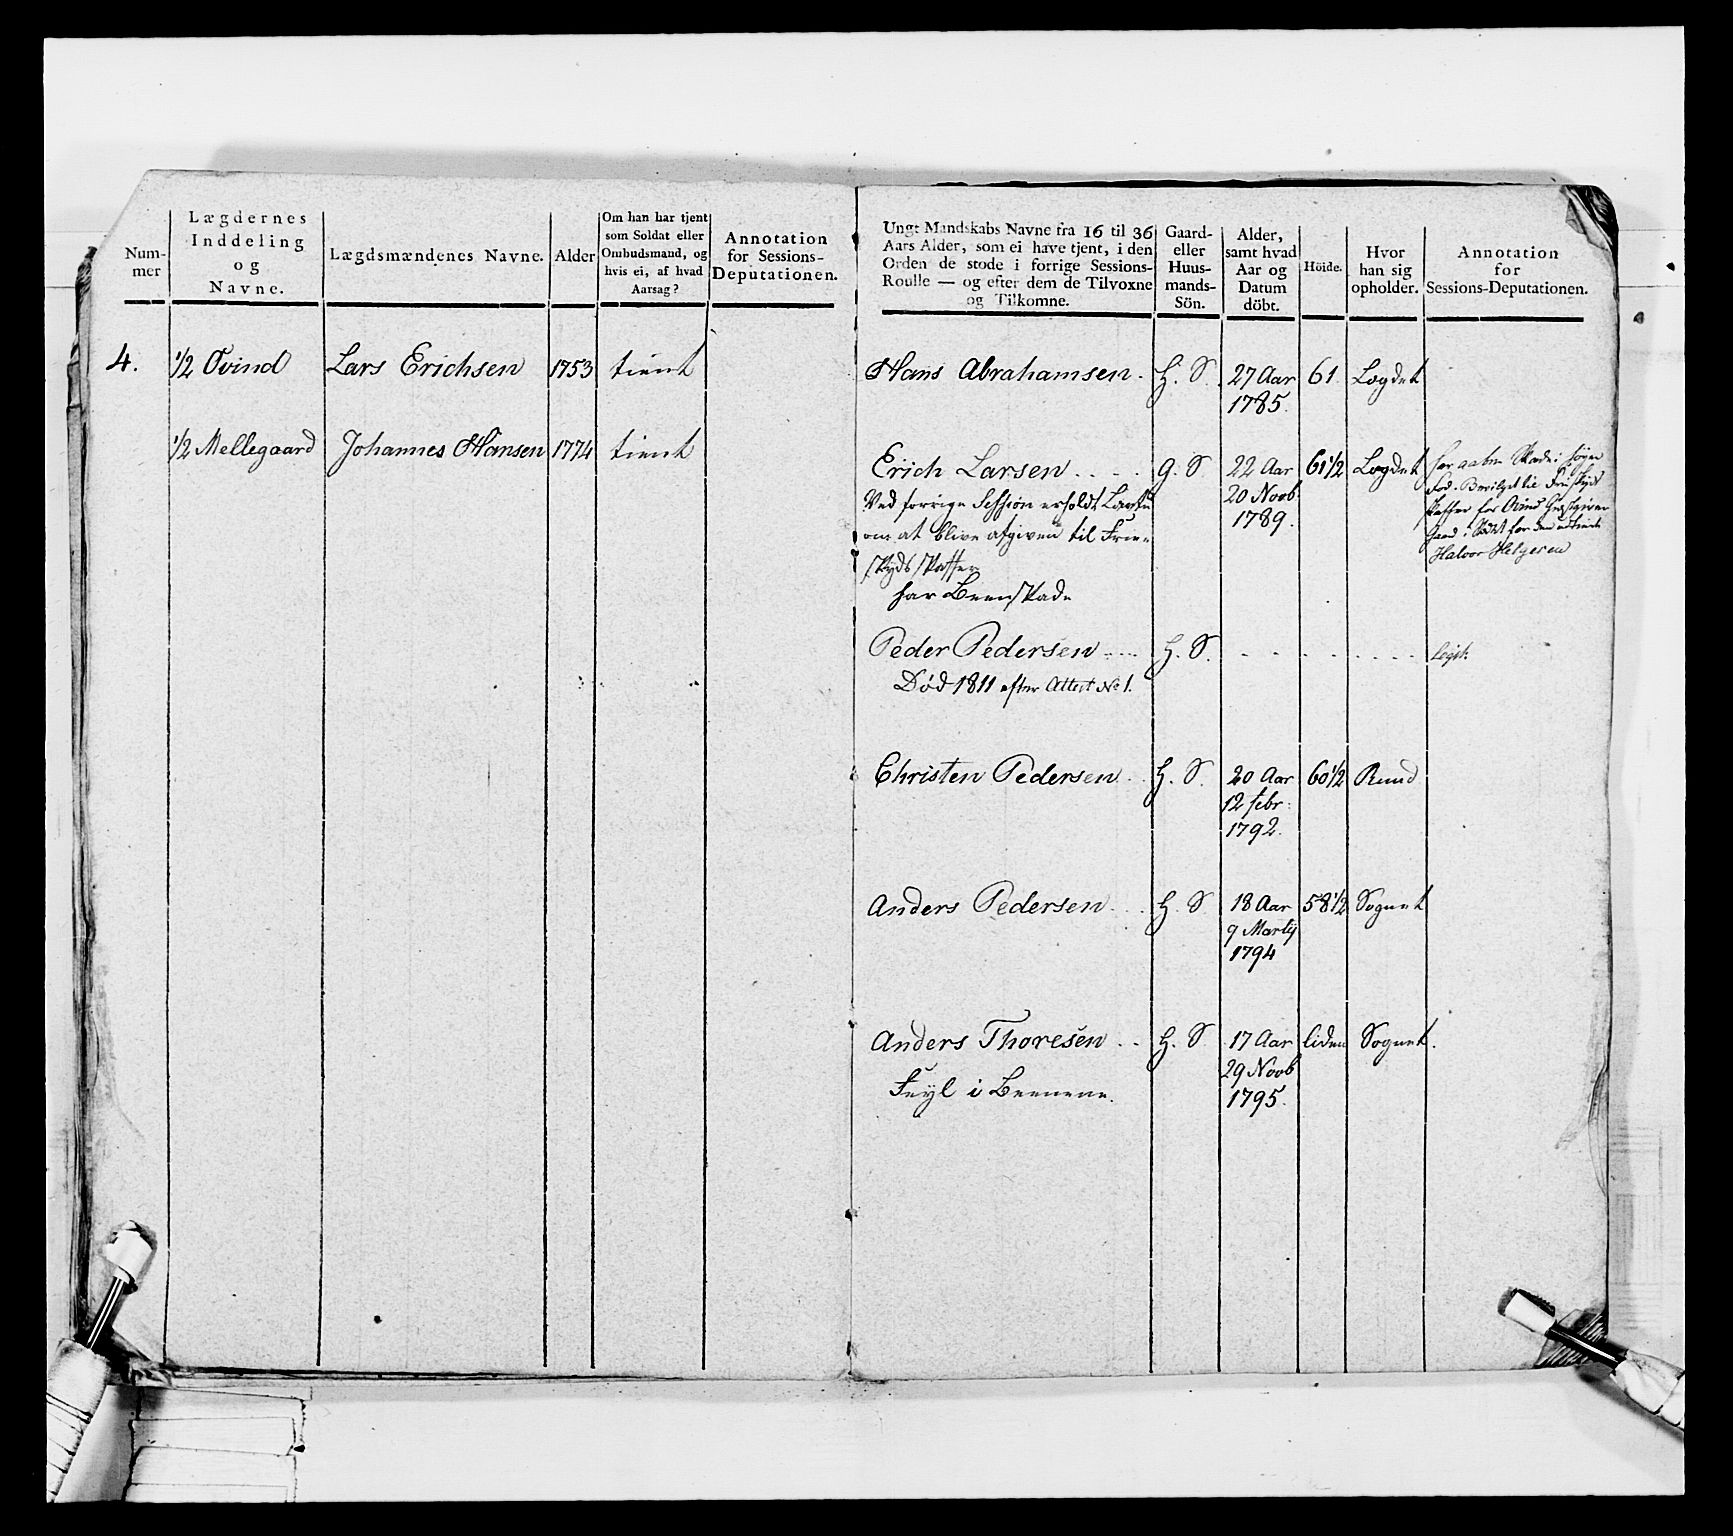 Num-
mer
Lægdernes
Inddeling
og
Navne.
Lægdsmændenes Navne.
Alder
Om han har tjent
som Soldat eller
Ombudsmand, og
hvis ei, af hvad
Aarsag?
Annotation
for Sessions-
Deputationen.
4. 1/2 Øvind Lars Erichsen 1753 tient
1/2 Mellegaard Johannes Hansen 1774 tient
Ungt Mandskabs Navne fra 16 til 36
Aars Alder, som ei have tjent, i den
Orden de stode i forrige Sessions-
Roulle — og efter dem de Tilvoxne
og Tilkomne.
Gaard-
eller
Huus-
mands-
Sön.
Alder,
samt hvad
Aar og
Datum
döbt.
Höide.
Hvor
han sig
opholder.
Annotation
for
Sessions-Deputationen.
Hans Abrahamsen. H. S. 27 Aar 61 Lægdet
1785.
Erich Larsen . . . . G. S 22 Aar 61 1/2 Lægdet
20 Novb
1789.
Ved forrige Session erholdt Løfte
om at blive afgiven til Frie-
skyds skaffer
har Beenskade
har aaben Skade i høyre
Fod. Bevilget til Friskyds
skaffer for Øvind Giæstgiver
Gaard i Stædet for den udtiente
Halvor Helgesen
Peder Pedersen . . . . H. S. - - - - - -
Død 1811 efter Attest No 1.
Christen Pedersen . . H. S. 20 Aar 60 1/2 Ruud
12 febr:
1792.
Anders Pedersen . . . H. S 18 Aar 58 1/2 Sognet
9 Martij
1794
Anders Thoresen . . H. S. 17 Aar liden Sognet.
29 Novb
1795.
Feyl i Beenene.